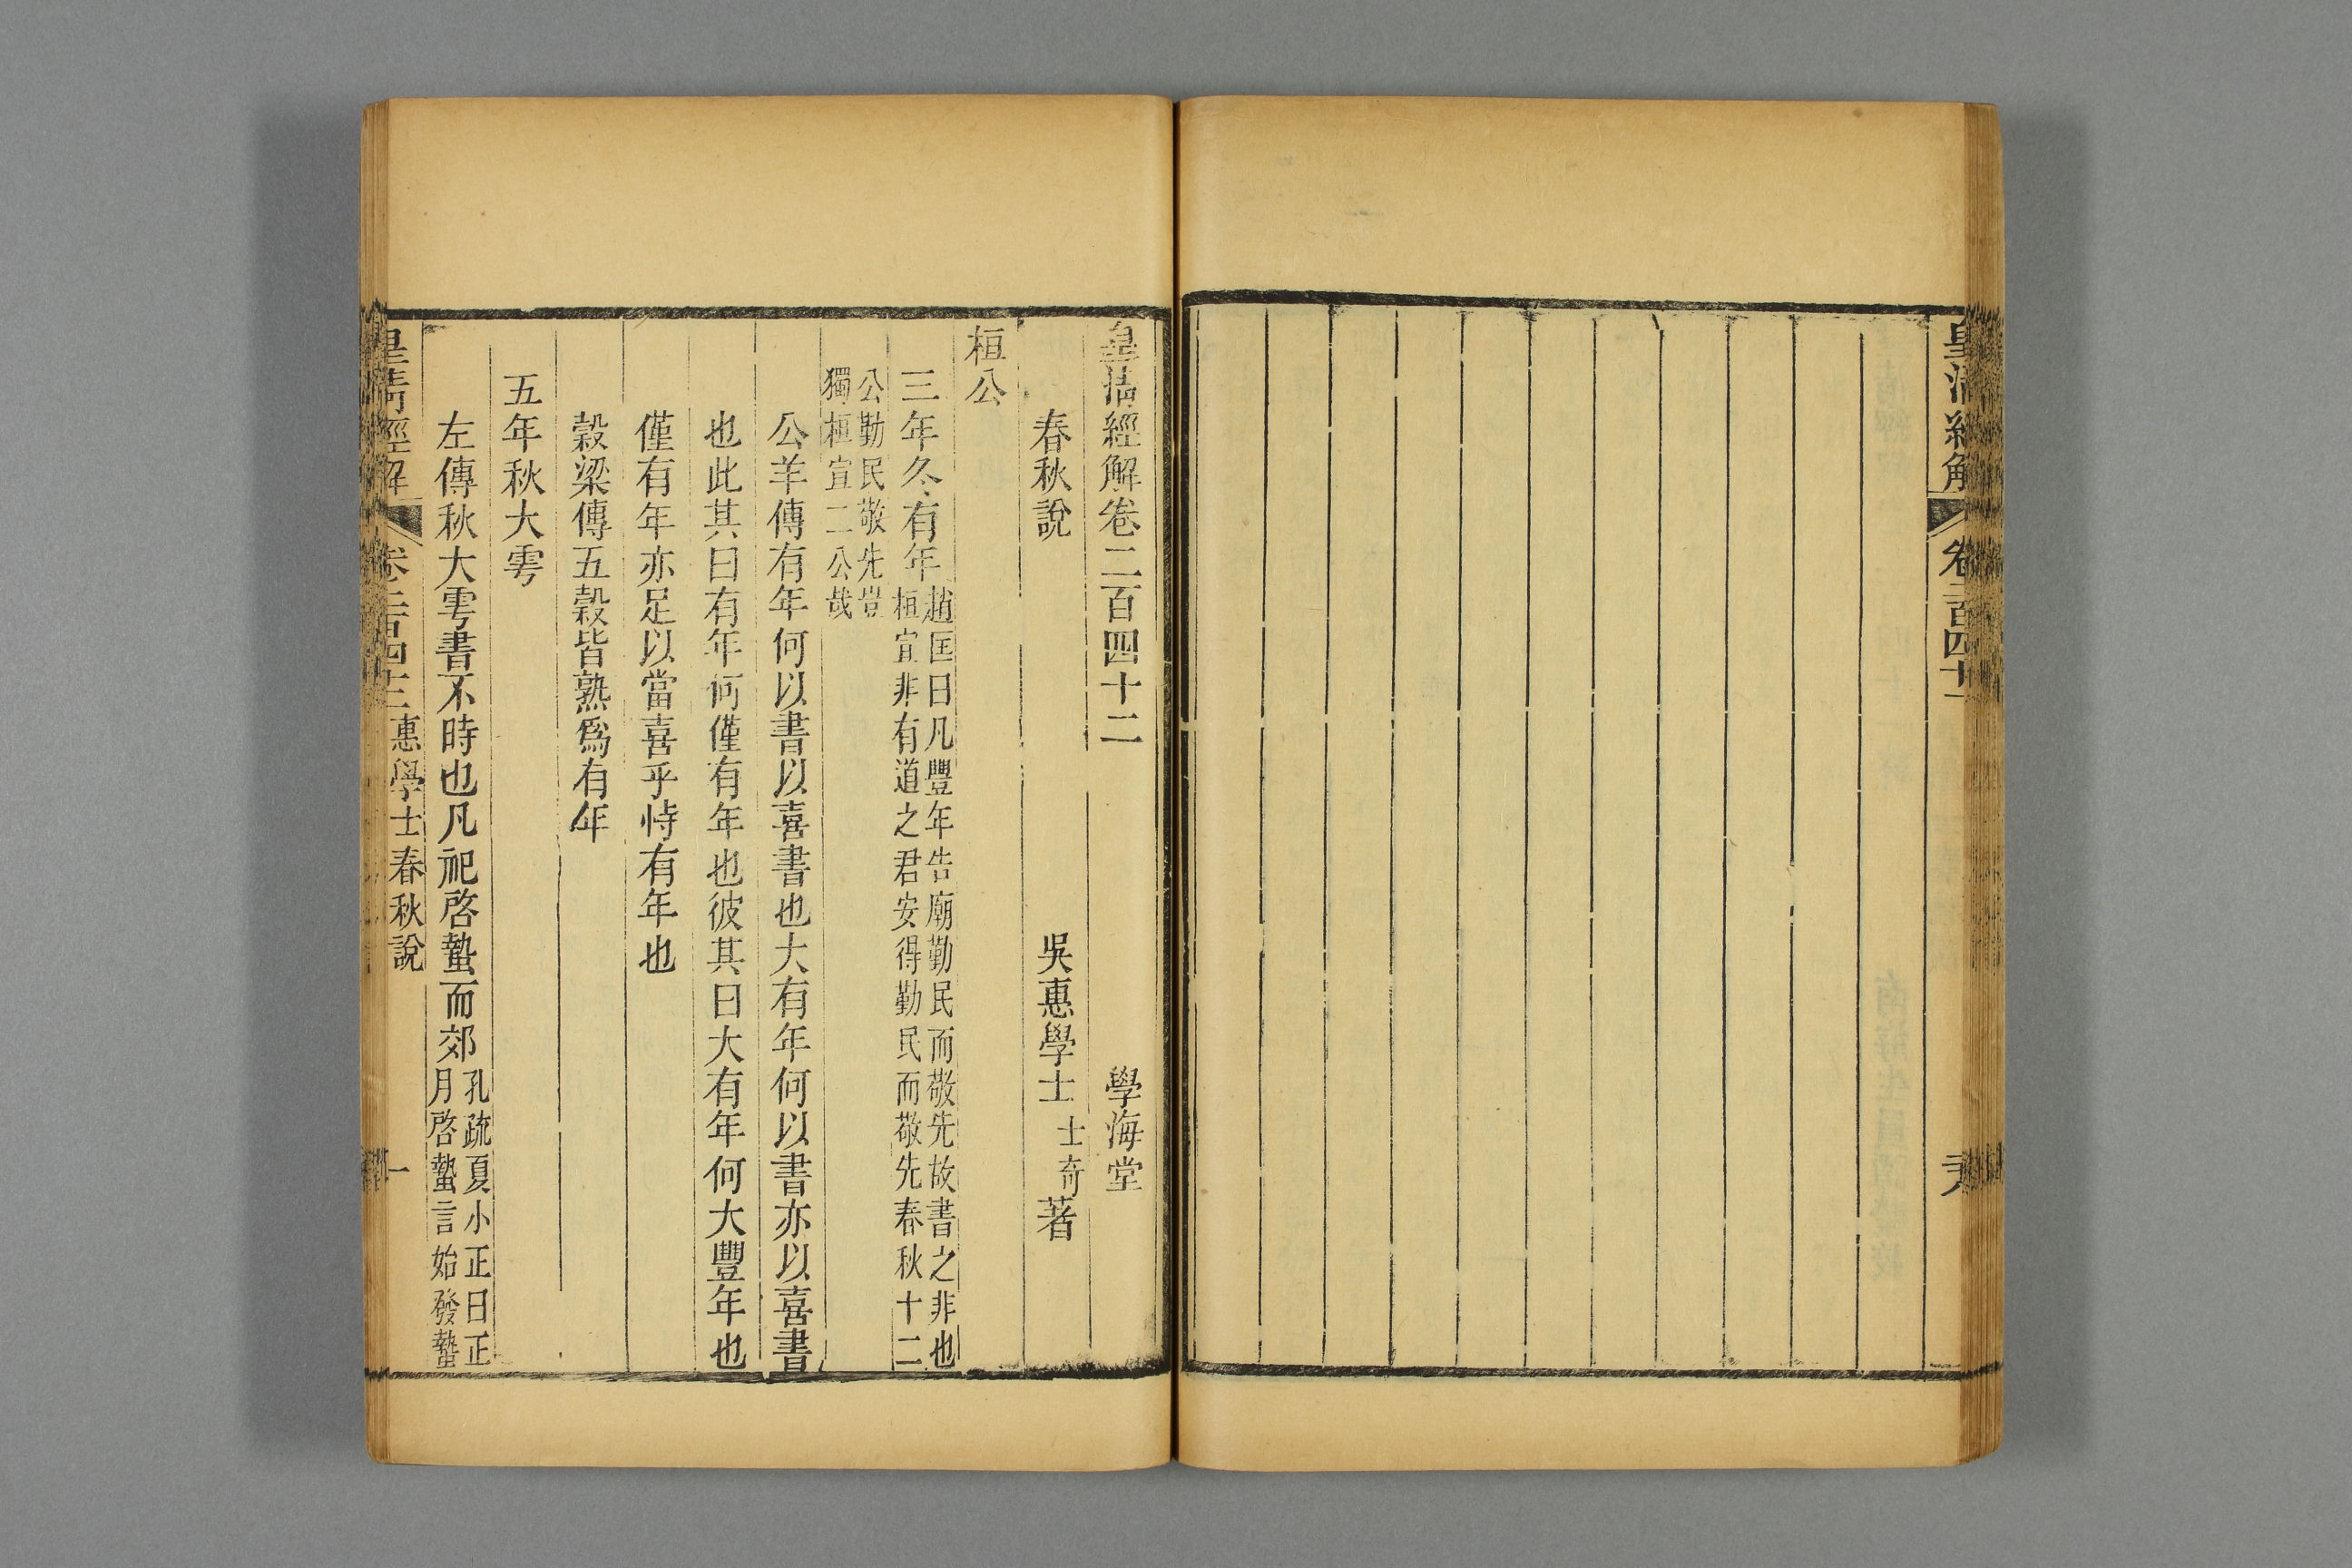 皇清經解 卷二百四十一
皇清經解卷二百四十二 學海堂
春秋說 吳惠學士士奇著
桓公
三年冬有年趙匡曰凡豐年告廟勤民而敬先故書之非也
桓宣非有道之君安得勤民而敬先春秋十二
公勤民敬先豈
獨桓宣二公哉
公羊傳有年何以書以喜書也大有年何以書亦以喜書
也此其曰有年何僅有年也彼其曰大有年何大豐年也
僅有年亦足以當喜乎恃有年也
穀梁傳五穀皆熟爲有年
五年秋大雩
左傳秋大雩書不時也凡祀啓蟄而郊孔疏夏小正曰正
月啓蟄言始發蟄
皇清經解 卷二百四十二 惠學士春秋說 一